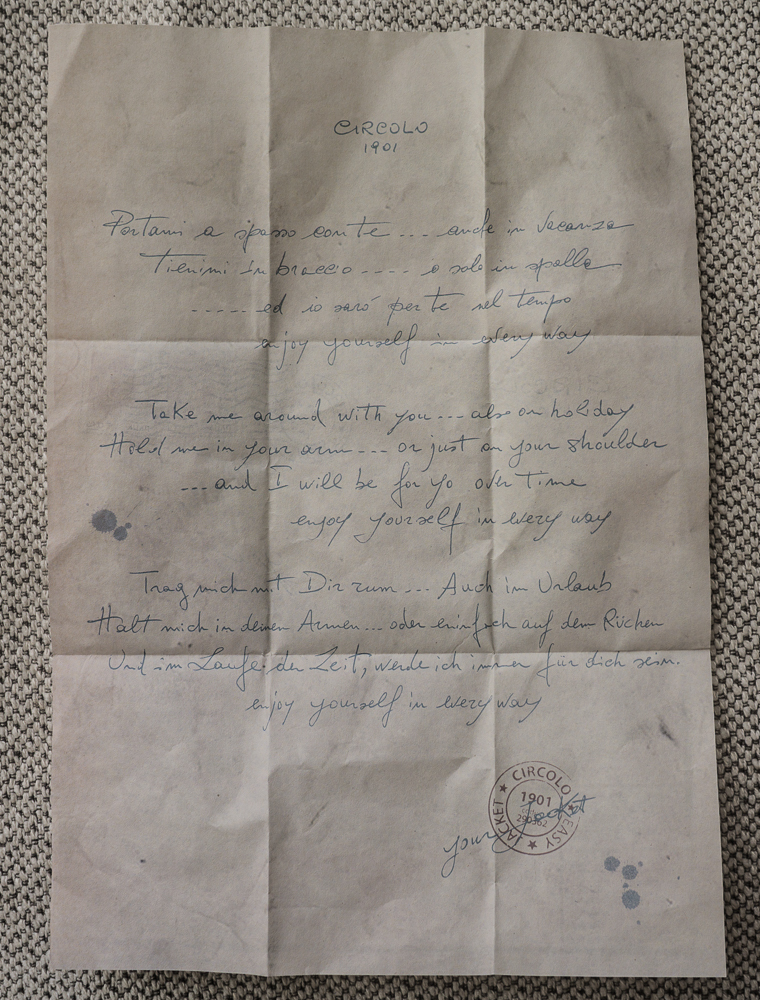 CIRCOLO
1901
Portami a spasso con te ... anche in vacanza
Tienimi in braccio .... o solo in spalla
.....ed io sarò per te nel tempo
enjoy yourself in every way
Take me around with you ... also on holiday
Hold me in your arm .... or just on your shoulder
...and I will be for yo over time
enjoy yourself in every way
Trag mich mit Dir rum ... Auch im Urlaub
Halt mich in deinen Armen... oder einfach auf dem Rücken
Und im Laufe der Zeit, werde ich immer für dich sein.
enjoy yourself in every way
CIRCOLO ★ EASY ★ JACKET ★
1901
your Jacket